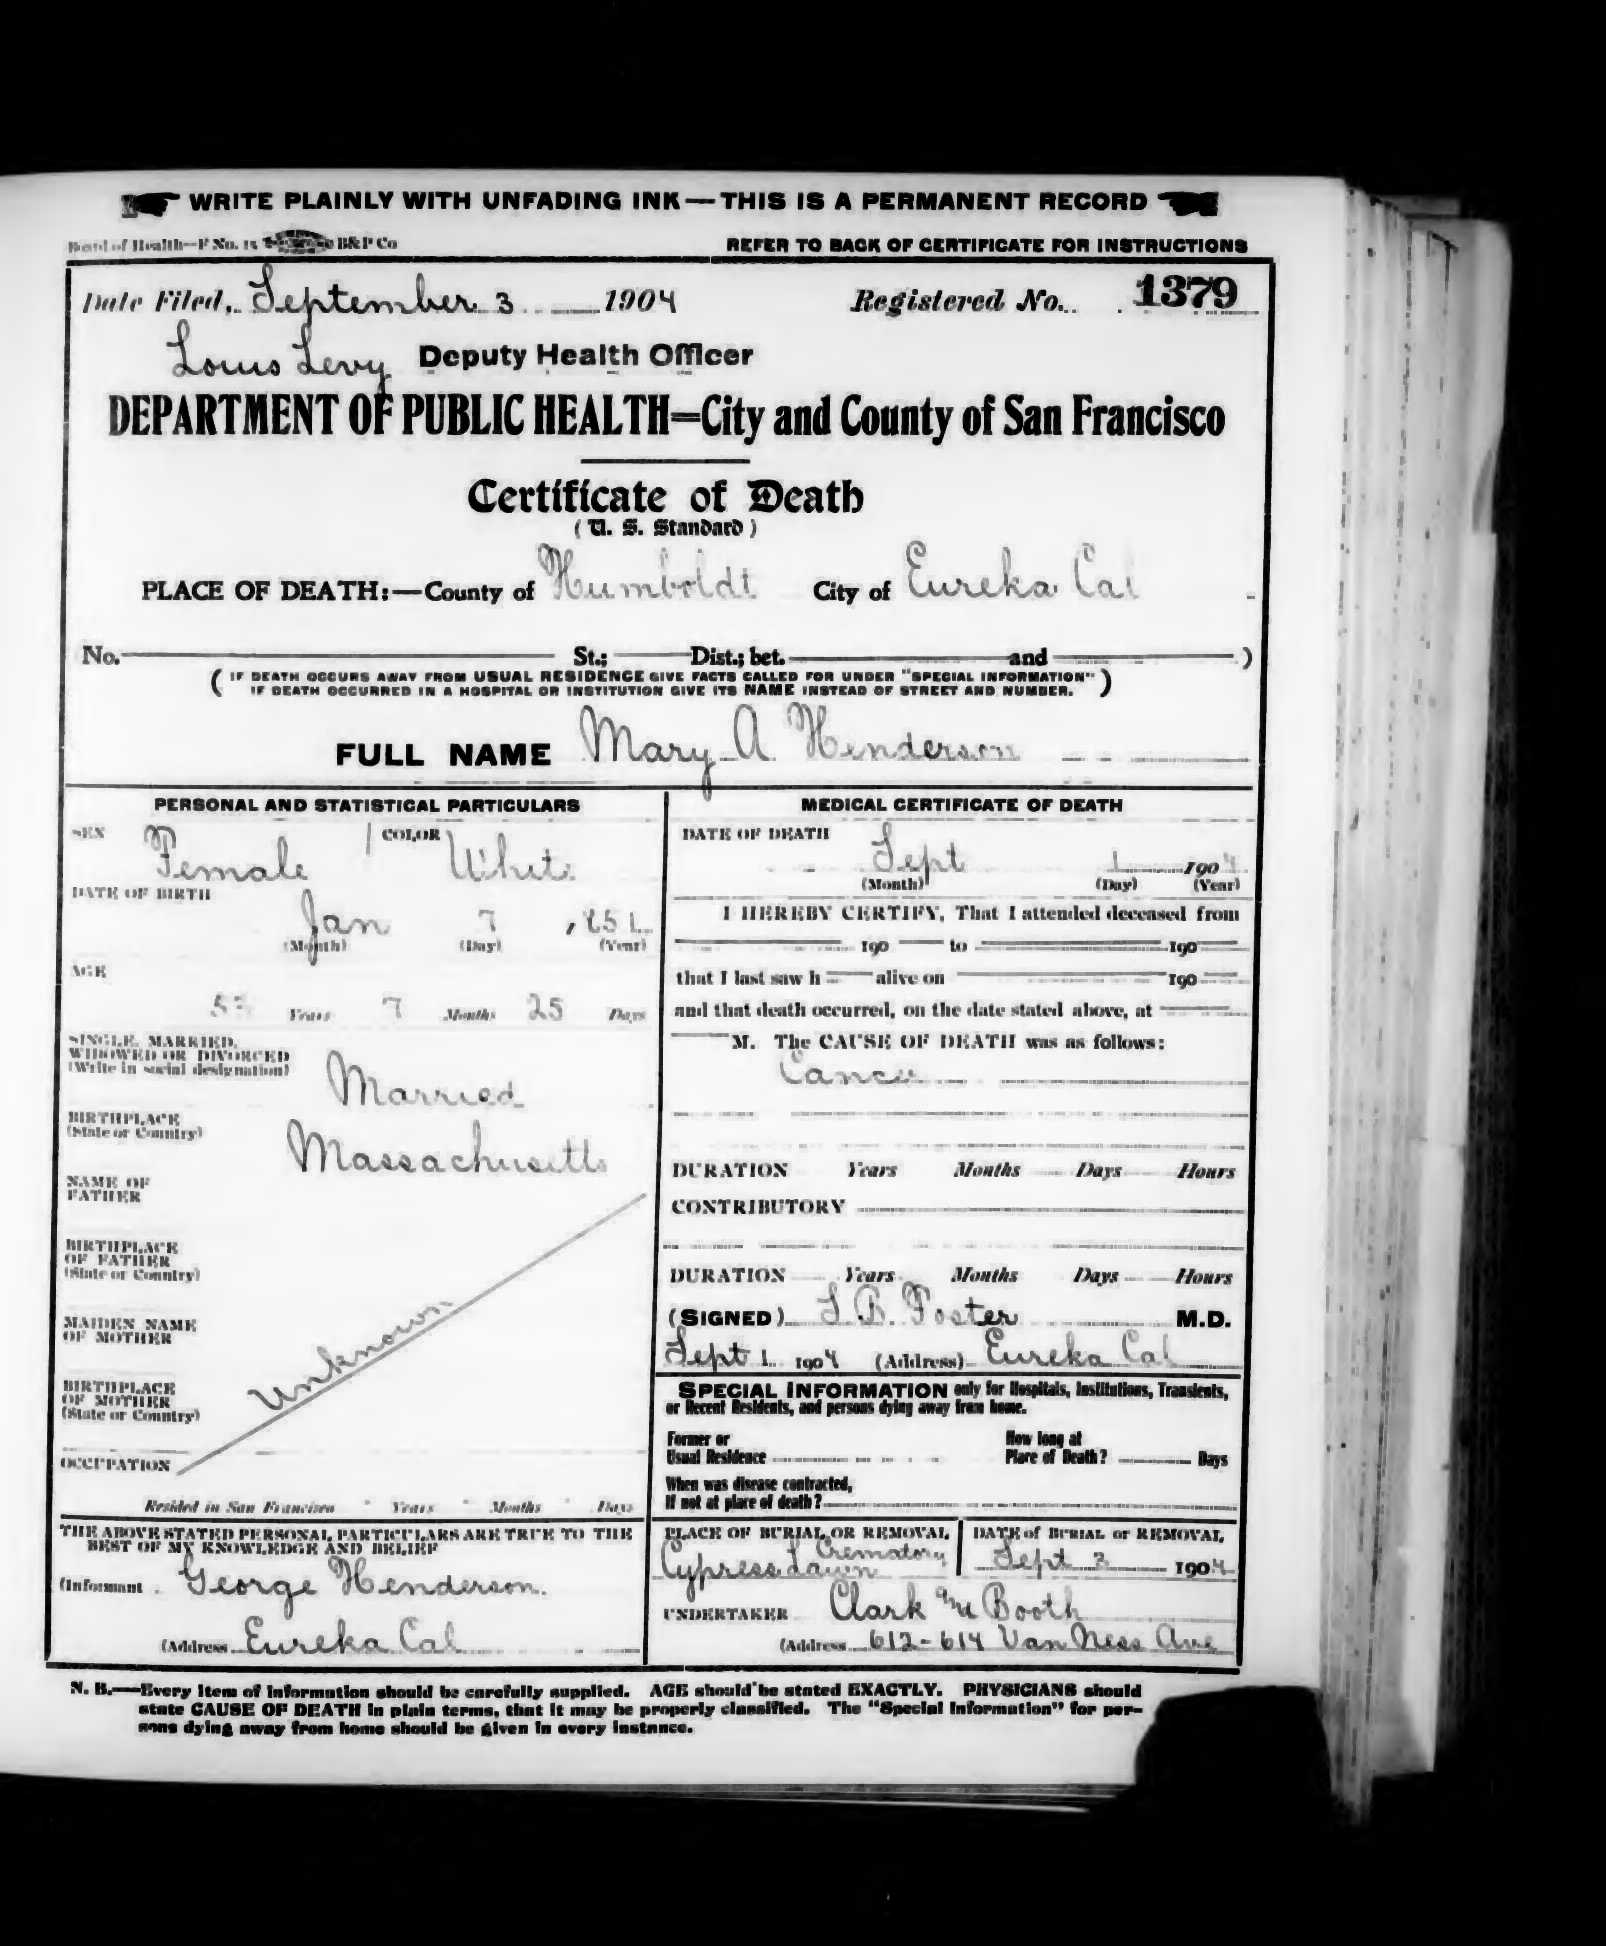 WRITE PLAINLY WITH UNFADING INK — THIS IS A PERMANENT RECORD
Board of Health—F No. 15 B&P Co REFER TO BACK OF CERTIFICATE FOR INSTRUCTIONS
Date Filed, September 3 1904 Registered No. 1379
Louis Levy Deputy Health Officer
DEPARTMENT OF PUBLIC HEALTH=City and County of San Francisco
Certificate of Death
(U. S. Standard)
PLACE OF DEATH:—County of Humboldt City of Eureka Cal
No. St.; Dist.; bet. and )
( IF DEATH OCCURS AWAY FROM USUAL RESIDENCE GIVE FACTS CALLED FOR UNDER "SPECIAL INFORMATION"
IF DEATH OCCURRED IN A HOSPITAL OR INSTITUTION GIVE ITS NAME INSTEAD OF STREET AND NUMBER. )
FULL NAME Mary A Henderson
PERSONAL AND STATISTICAL PARTICULARS
SEX Female COLOR White
DATE OF BIRTH
Jan 7 , 851
(Month) (Day) (Year)
AGE
53 Years 7 Months 25 Days
SINGLE, MARRIED,
WIDOWED OR DIVORCED
(Write in social designation) Married
BIRTHPLACE
(State or Country) Massachusetts
NAME OF
FATHER
BIRTHPLACE
OF FATHER
(State or Country)
MAIDEN NAME
OF MOTHER
Unknown
BIRTHPLACE
OF MOTHER
(State or Country)
OCCUPATION
Resided in San Francisco Years Months Days
THE ABOVE STATED PERSONAL PARTICULARS ARE TRUE TO THE
BEST OF MY KNOWLEDGE AND BELIEF
(Informant George Henderson.
(Address Eureka Cal
MEDICAL CERTIFICATE OF DEATH
DATE OF DEATH
Sept 1 1904
(Month) (Day) (Year)
I HEREBY CERTIFY, That I attended deceased from
190 to 190
that I last saw h alive on 190
and that death occurred, on the date stated above, at
M. The CAUSE OF DEATH was as follows:
Cancer
DURATION Years Months Days Hours
CONTRIBUTORY
DURATION Years Months Days Hours
(SIGNED) L. B. Foster M.D.
Sept 1 1904 (Address) Eureka Cal
SPECIAL INFORMATION only for Hospitals, Institutions, Transients,
or Recent Residents, and persons dying away from home.
Former or
Usual Residence
How long at
Place of Death? Days
When was disease contracted,
If not at place of death?
PLACE OF BURIAL OR REMOVAL
Crematory
Cypress Lawn
DATE of BURIAL or REMOVAL
Sept 3 1904
UNDERTAKER Clark and Booth
(Address 612-614 Van Ness Ave
N. B.—Every item of information should be carefully supplied. AGE should be stated EXACTLY. PHYSICIANS should
state CAUSE OF DEATH in plain terms, that it may be properly classified. The "Special Information" for per-
sons dying away from home should be given in every instance.